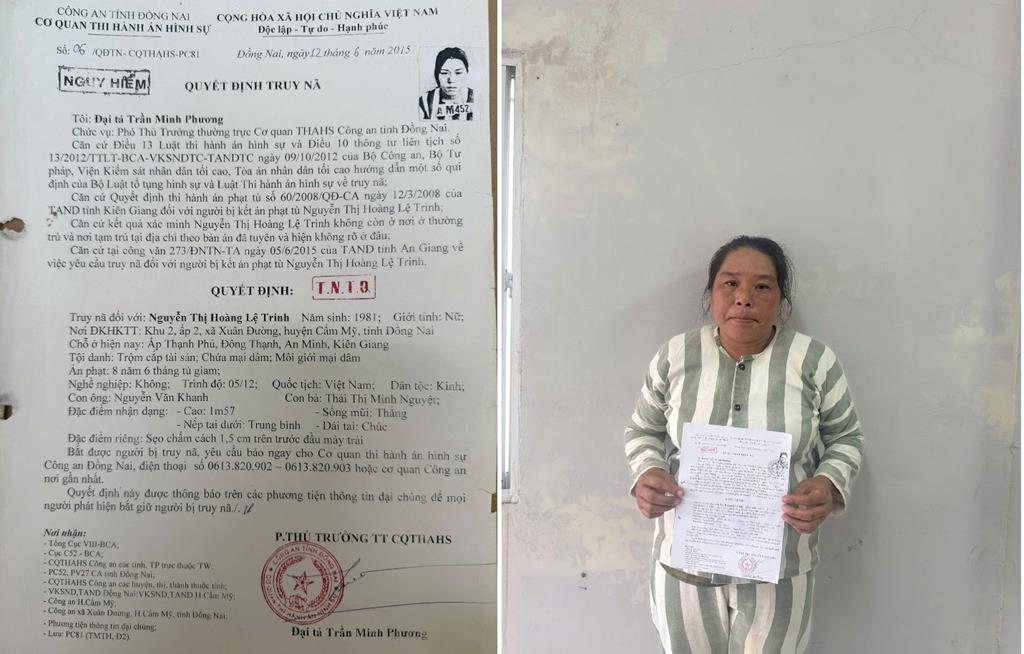 CÔNG AN TỈNH ĐỒNG NAI
CƠ QUAN THI HÀNH ÁN HÌNH SỰ
CỘNG HÒA XÃ HỘI CHỦ NGHĨA VIỆT NAM
Độc lập - Tự do - Hạnh phúc
Số: 06 /QĐTN- CQTHAHS-PC81
Đồng Nai, ngày 12 tháng 6 năm 2015
NGUY HIỂM
QUYẾT ĐỊNH TRUY NÃ
A M452
Tôi: Đại tá Trần Minh Phương
Chức vụ: Phó Thủ Trưởng thường trực Cơ quan THAHS Công an tỉnh Đồng Nai.
Căn cứ Điều 13 Luật thi hành án hình sự và Điều 10 thông tư liên tịch số
13/2012/TTLT-BCA-VKSNDTC-TANDTC ngày 09/10/2012 của Bộ Công an, Bộ Tư
pháp, Viện Kiểm sát nhân dân tối cao, Tòa án nhân dân tối cao hướng dẫn một số qui
định của Bộ Luật tố tụng hình sự và Luật Thi hành án hình sự về truy nã;
Căn cứ Quyết định thi hành án phạt tù số 60/2008/QĐ-CA ngày 12/3/2008 của
TAND tỉnh Kiên Giang đối với người bị kết án phạt tù Nguyễn Thị Hoàng Lệ Trinh;
Căn cứ kết quả xác minh Nguyễn Thị Hoàng Lệ Trinh không còn ở nơi ở thường
trú và nơi tạm trú tại địa chỉ theo bản án đã tuyên và hiện không rõ ở đâu;
Căn cứ tại công văn 273/ĐNTN-TA ngày 05/6/2015 của TAND tỉnh An Giang về
việc yêu cầu truy nã đối với người bị kết án phạt tù Nguyễn Thị Hoàng Lệ Trinh.
QUYẾT ĐỊNH:
T.N.T.Q
Truy nã đối với: Nguyễn Thị Hoàng Lệ Trinh Năm sinh: 1981; Giới tính: Nữ;
Nơi ĐKHKTT: Khu 2, ấp 2, xã Xuân Đường, huyện Cẩm Mỹ, tỉnh Đồng Nai
Chỗ ở hiện nay: Ấp Thạnh Phú, Đông Thạnh, An Minh, Kiên Giang
Tội danh: Trộm cắp tài sản; Chứa mại dâm; Môi giới mại dâm
Án phạt: 8 năm 6 tháng tù giam;
Nghề nghiệp: Không; Trình độ: 05/12; Quốc tịch: Việt Nam; Dân tộc: Kinh;
Con ông: Nguyễn Văn Khanh Con bà: Thái Thị Minh Nguyệt;
Đặc điểm nhận dạng: - Cao: 1m57 - Sống mũi: Thẳng
- Nếp tai dưới: Trung bình - Dái tai: Chúc
Đặc điểm riêng: Sẹo chấm cách 1,5 cm trên trước đầu mày trái
Bắt được người bị truy nã, yêu cầu báo ngay cho Cơ quan thi hành án hình sự
Công an Đồng Nai, điện thoại số 0613.820.902 – 0613.820.903 hoặc cơ quan Công an
nơi gần nhất.
Quyết định này được thông báo trên các phương tiện thông tin đại chúng để mọi
người phát hiện bắt giữ người bị truy nã./.
Nơi nhận:
- Tổng Cục VIII-BCA;
- Cục C52 - BCA;
- CQTHAHS Công an các tỉnh, TP trực thuộc TW;
- PC52, PV27 CA tỉnh Đồng Nai;
- CQTHAHS Công an các huyện, thị, thành thuộc tỉnh;
- VKSND,TAND Đồng Nai;VKSND,TAND H.Cẩm Mỹ;
- Công an H.Cẩm Mỹ;
- Công an xã Xuân Đường, H.Cẩm Mỹ, tỉnh Đồng Nai;
- Phương tiện thông tin đại chúng;
- Lưu: PC81 (TMTH, Đ2).
P.THỦ TRƯỞNG TT CQTHAHS
CÔNG AN TỈNH ĐỒNG NAI
Đại tá Trần Minh Phương